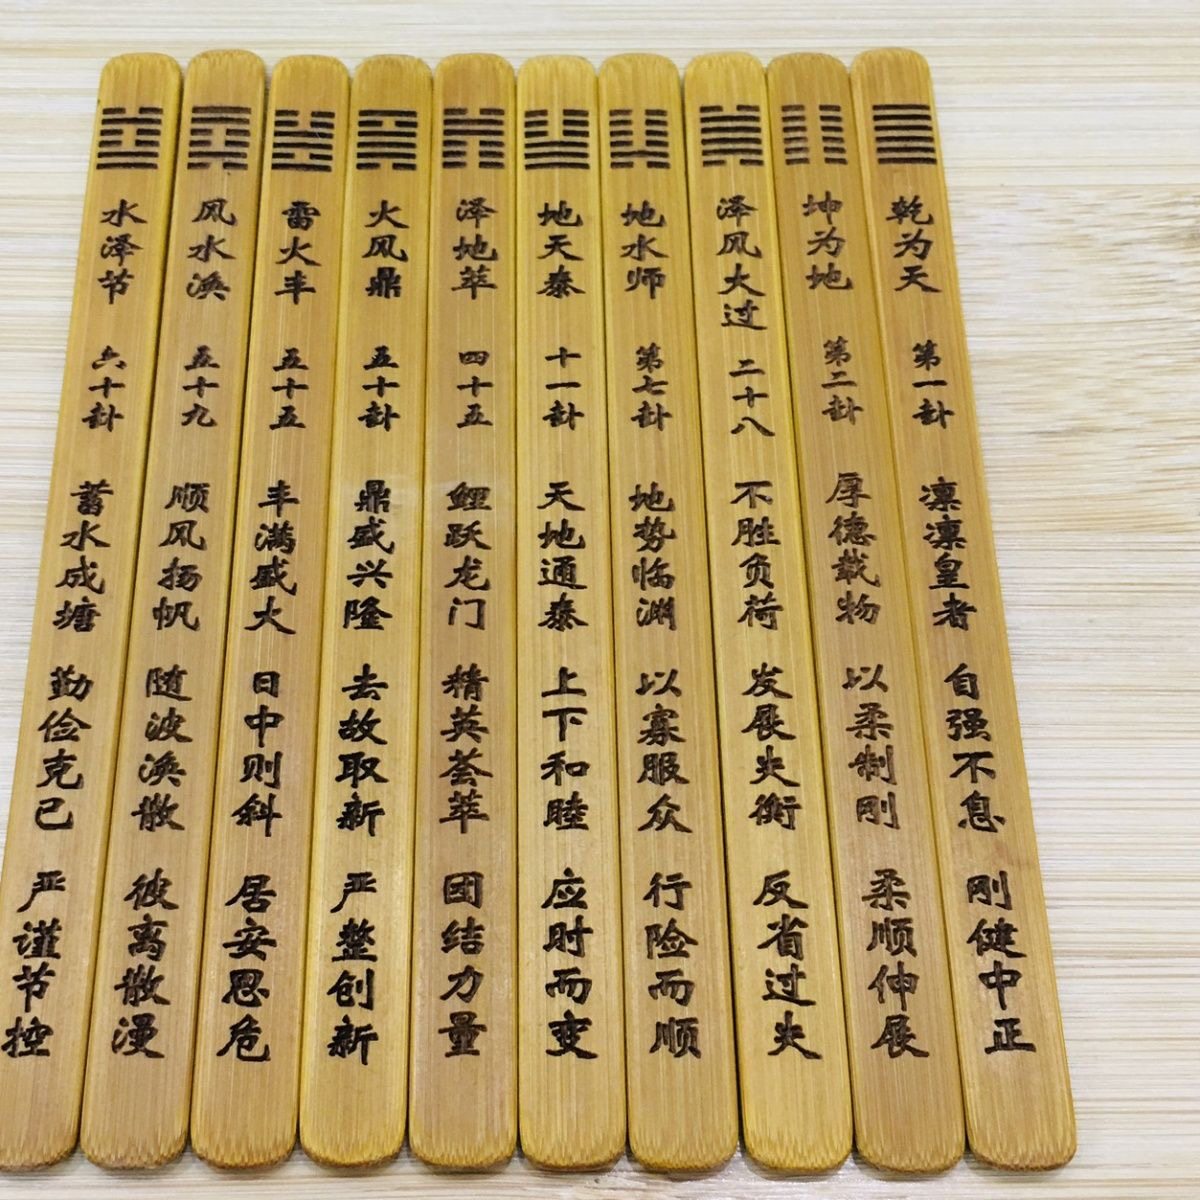 乾为天 第一卦 凛凛皇者 自强不息 刚健中正
坤为地 第二卦 厚德载物 以柔制刚 柔顺伸展
泽风大过 二十八 不胜负荷 发展失衡 反省过失
地水师 第七卦 地势临渊 以寡服众 行险而顺
地天泰 十一卦 天地通泰 上下和睦 应时而变
泽地萃 四十五 鲤跃龙门 精英荟萃 团结力量
火风鼎 五十卦 鼎盛兴隆 去故取新 严整创新
雷火丰 五十五 丰满盛大 日中则斜 居安思危
风水涣 五十九 顺风扬帆 随波涣散 彼离散漫
水泽节 六十卦 蓄水成塘 勤俭克已 严谨节控